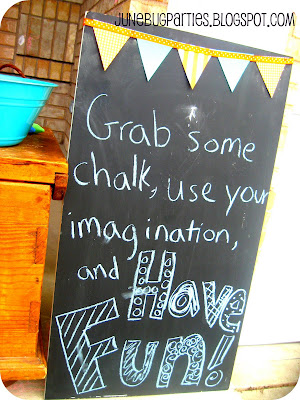 JUNEBUGPARTIES.BLOGSPOT.COM
Grab some
chalk, use your
imagination,
and Have
Fun!